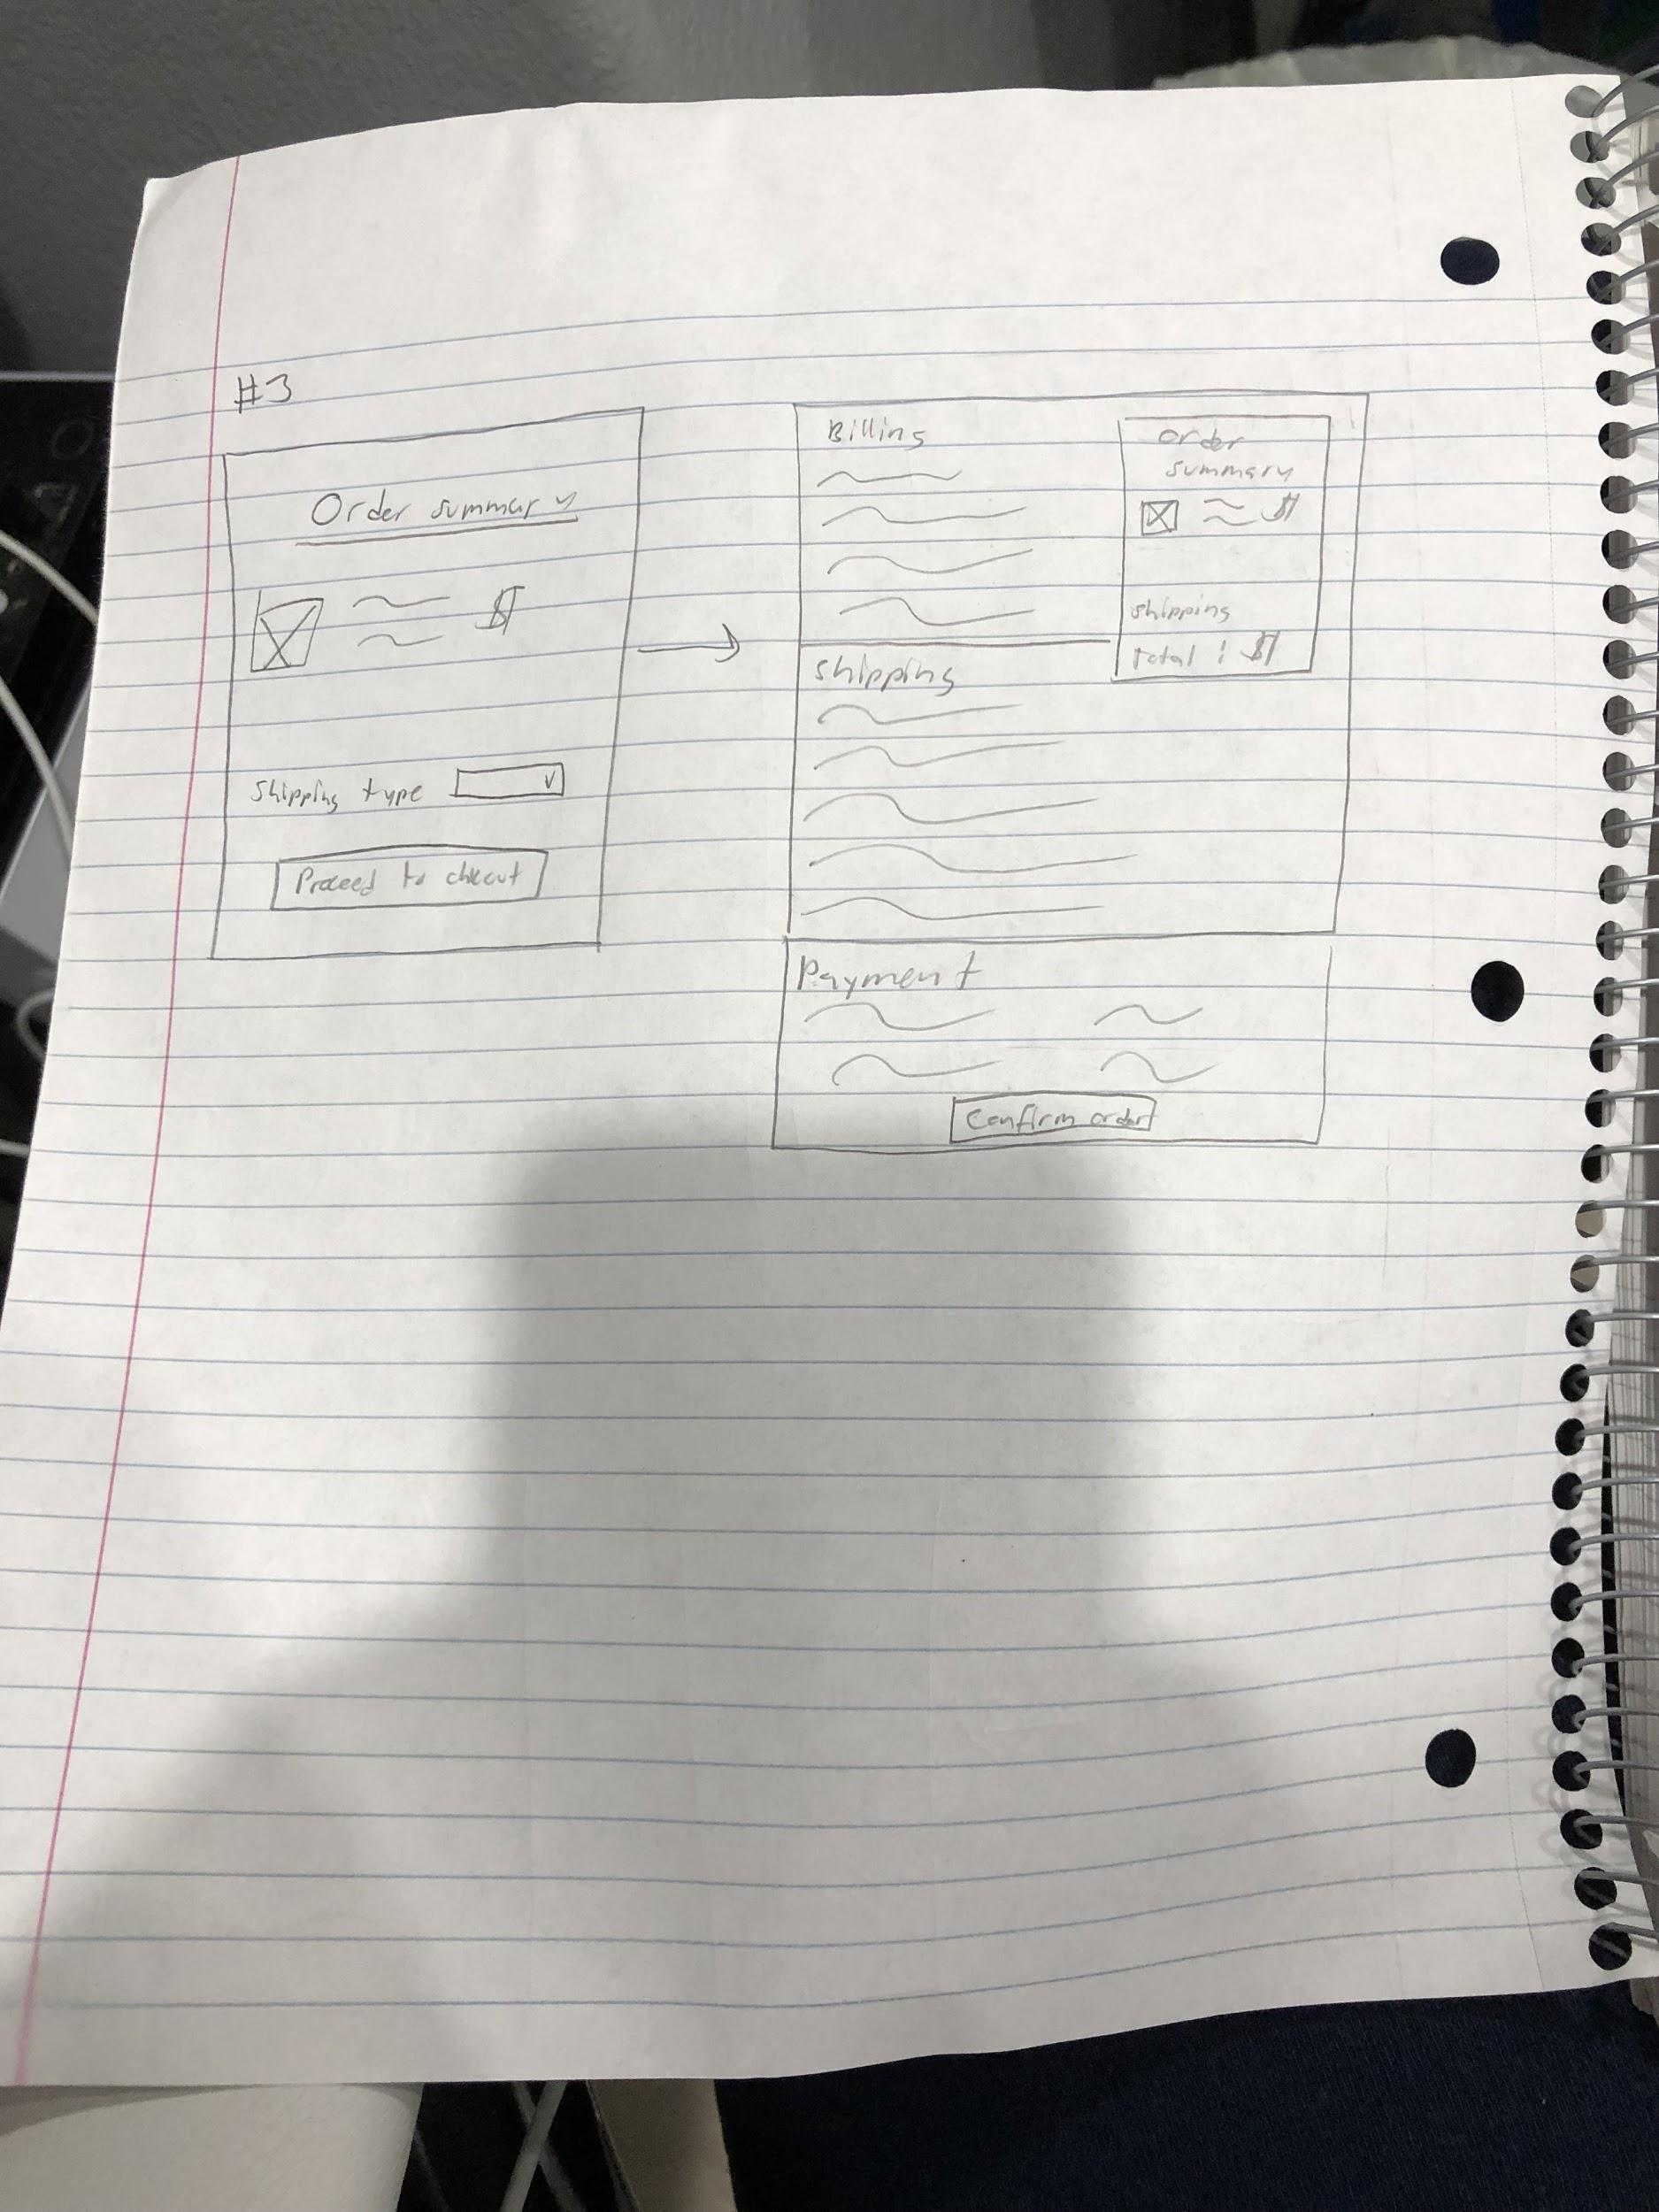 #3
Order summary
$
Shipping type
Proceed to checut
Billing
Shipping
Order
summary
$
Shipping
Total : $
Payment
Confirm order